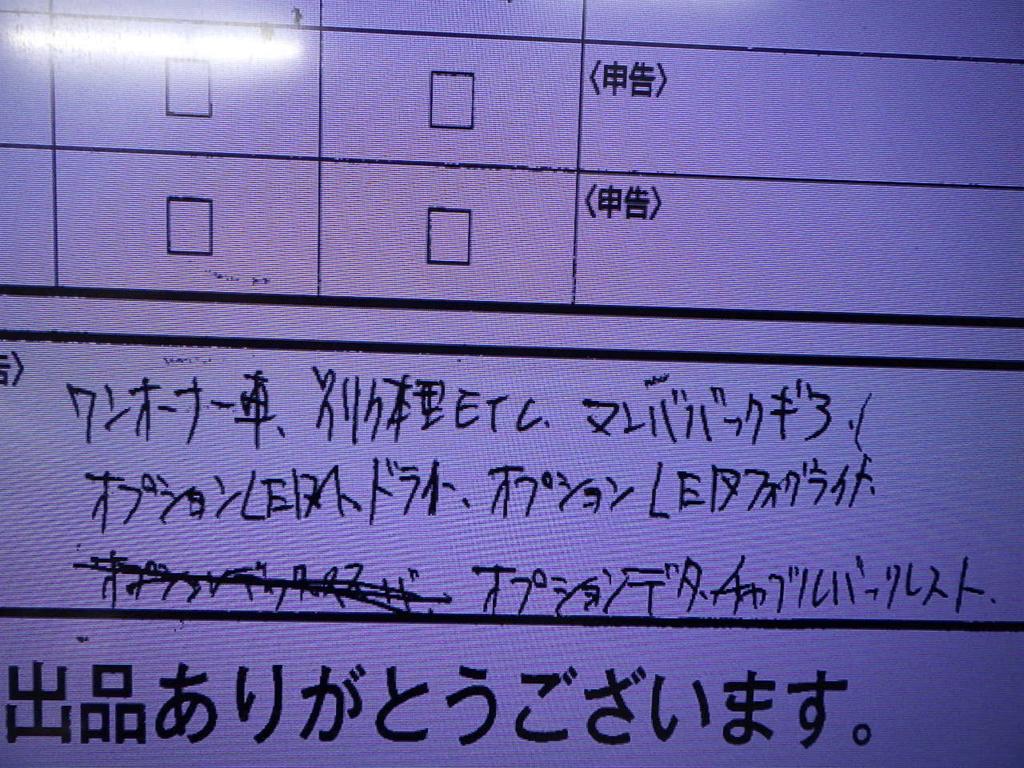 〈申告〉
〈申告〉
告〉
ワンオーナー車、別体型ETC、
オプションLEDヘッドライト、オプションLEDフォグライト、
オプションデタッチャブルバックレスト、
出品ありがとうございます。